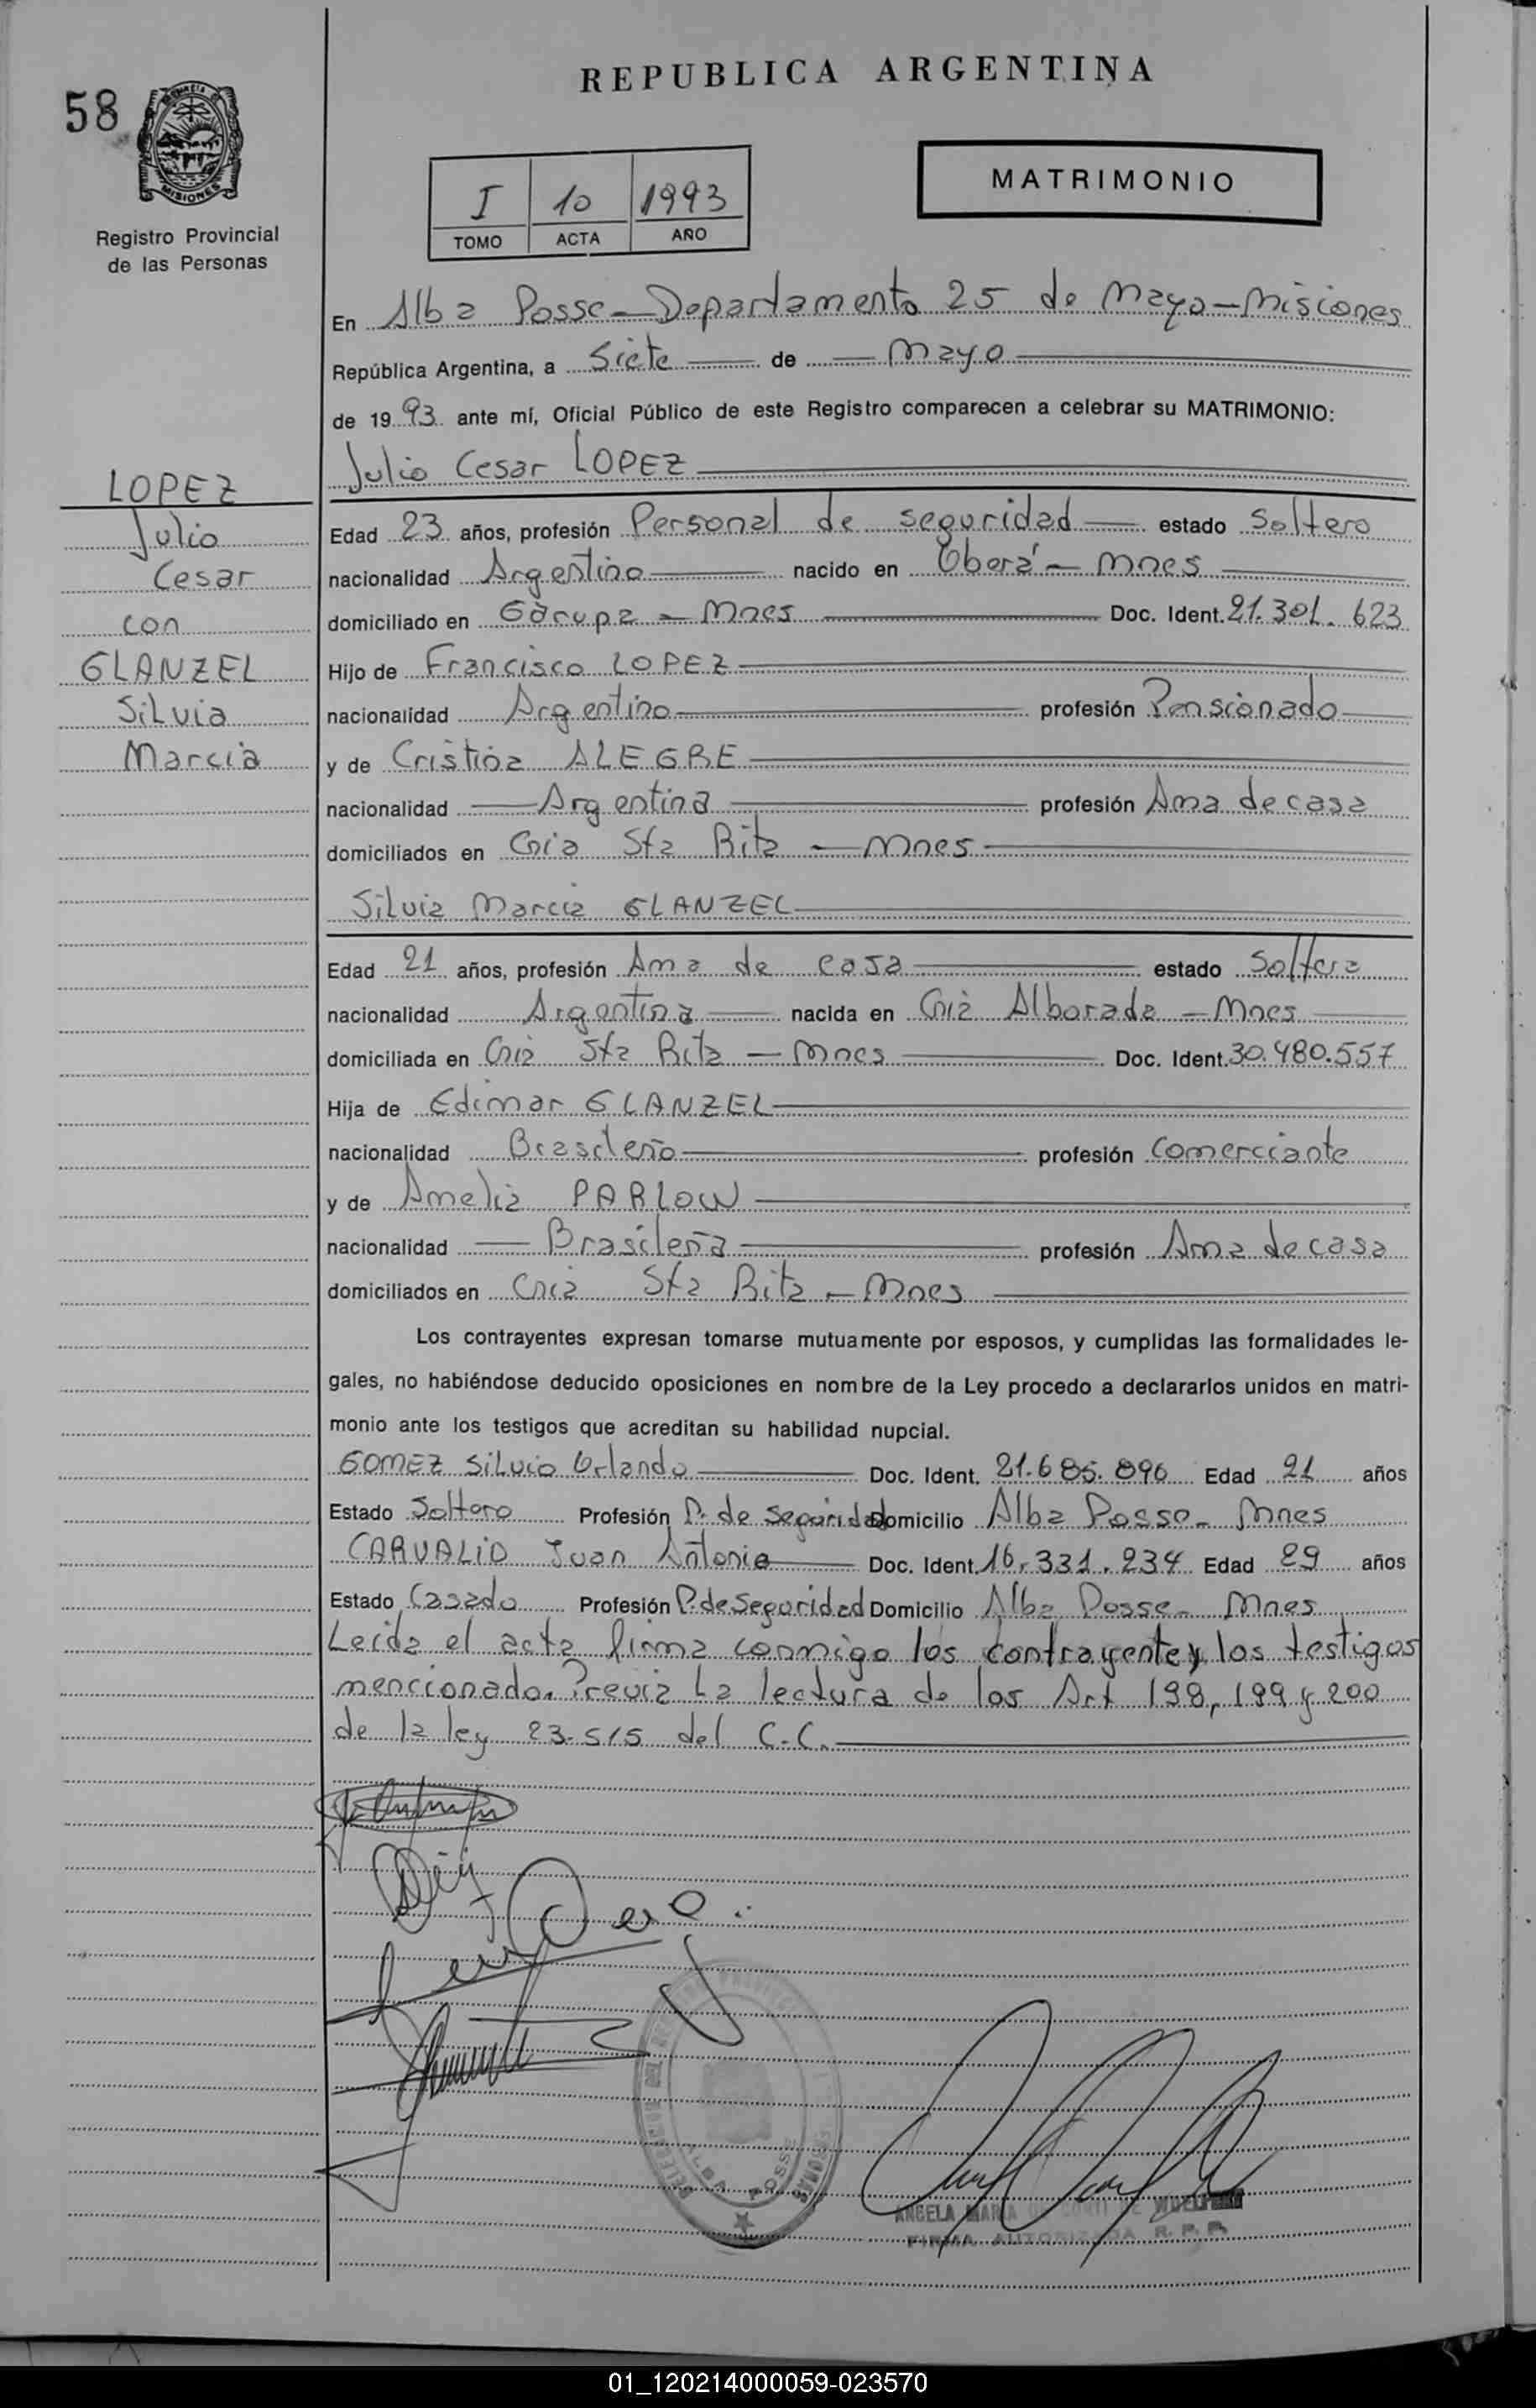 REPUBLICA ARGENTINA
58
MISIONES
Registro Provincial
de las Personas
I 10 1993
TOMO ACTA AÑO
MATRIMONIO
En Alba Posse - Departamento 25 de Mayo - Misiones
República Argentina, a Siete de Mayo
de 1993 ante mí, Oficial Público de este Registro comparecen a celebrar su MATRIMONIO:
LOPEZ
Julio
Cesar
con
GLANZEL
Silvia
Marcia
Julio Cesar LOPEZ
Edad 23 años, profesión Personal de seguridad estado Soltero
nacionalidad Argentino nacido en Oberá - Mnes
domiciliado en Garupa - Mnes Doc. Ident. 21.301.623
Hijo de Francisco LOPEZ
nacionalidad Argentino profesión Pensionado
y de Cristina ALEGRE
nacionalidad Argentina profesión Ama de casa
domiciliados en Cnia Sta Rita - Mnes
Silvia Marcia GLANZEL
Edad 21 años, profesión Ama de casa estado Soltera
nacionalidad Argentina nacida en Cnia Alborada - Mnes
domiciliada en Cnia Sta Rita - Mnes Doc. Ident. 30.480.557
Hija de Edimar GLANZEL
nacionalidad Brasileño profesión Comerciante
y de Amelia PARLOW
nacionalidad Brasileña profesión Ama de casa
domiciliados en Cnia Sta Rita - Mnes
Los contrayentes expresan tomarse mutuamente por esposos, y cumplidas las formalidades le-
gales, no habiéndose deducido oposiciones en nombre de la Ley procedo a declararlos unidos en matri-
monio ante los testigos que acreditan su habilidad nupcial.
GOMEZ Silvio Orlando Doc. Ident. 21.685.896 Edad 21 años
Estado Soltero Profesión P. de Seguridad Domicilio Alba Posse - Mnes
CARVALIO Juan Antonio Doc. Ident. 16.331.234 Edad 29 años
Estado Casado Profesión P. de Seguridad Domicilio Alba Posse - Mnes
Leida el acta firma conmigo los contrayente y los testigos
mencionado. Previa La lectura de los Art 198, 199 y 200
de la ley 23.515 del C.C.
ALBA POSSE
ANGELA MARIA
FIRMA AUTORIZADA R. P. P.
01_120214000059-023570